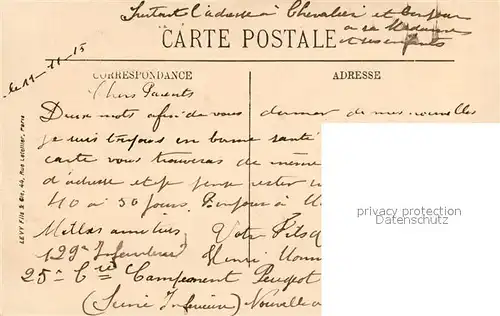 Surtout l'adresse à Chevalier et bonjour
à sa Madame
et ses enfants
CARTE POSTALE
le 11-11-15
CORRESPONDANCE
ADRESSE
Chers Parents
Deux mots afin de vous donner de mes nouvelles
je suis toujours en bonne santé
carte vous trouverez de même
d'adresse et je pense rester
40 à 50 jours. Bonjour à
Meilleures amitiés Votre Fils
129e Infanterie Henri
25e Cie Campement Peugeot
(Seine Inférieure) Nouvelle
LEVY Fils & Cie, 44, Rue Letellier, Paris
privacy protection
Datenschutz